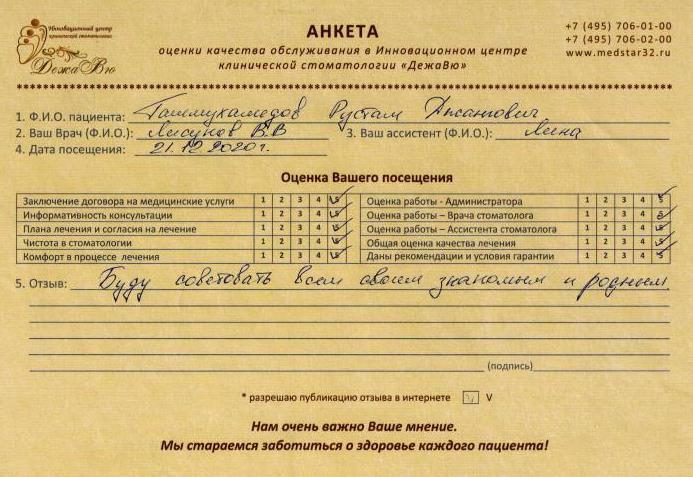 Инновационный центр
клинической стоматологии
ДежаВю
АНКЕТА
оценки качества обслуживания в Инновационном центре
клинической стоматологии «ДежаВю»
+7 (495) 706-01-00
+7 (495) 706-02-00
www.medstar32.ru
1. Ф.И.О. пациента: Ташмухамедов Рустам
2. Ваш Врач (Ф.И.О.): Лисунов В.В 3. Ваш ассистент (Ф.И.О.): Лина
4. Дата посещения: 21.12.2020г.
Оценка Вашего посещения
Заключение договора на медицинские услуги 1 2 3 4 5 Оценка работы - Администратора 1 2 3 4 5
Информативность консультации 1 2 3 4 5 Оценка работы – Врача стоматолога 1 2 3 4 5
Плана лечения и согласия на лечение 1 2 3 4 5 Оценка работы – Ассистента стоматолога 1 2 3 4 5
Чистота в стоматологии 1 2 3 4 5 Общая оценка качества лечения 1 2 3 4 5
Комфорт в процессе лечения 1 2 3 4 5 Даны рекомендации и условия гарантии 1 2 3 4 5
5. Отзыв: Буду советовать всем своим знакомым и родным
(подпись)
* разрешаю публикацию отзыва в интернете V V
Нам очень важно Ваше мнение.
Мы стараемся заботиться о здоровье каждого пациента!